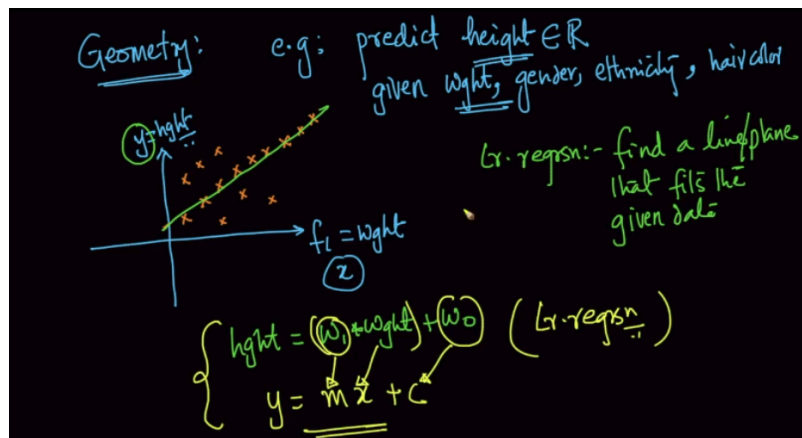 Geometry: e.g: predict height ∈ R
given wght, gender, ethnicity, hair color
y=hght
f1 = wght
x
Lr.regrsn:- find a line/plane
that fits the
given data
hght = (w1 * wght) + w0 (Lr.regrsn)
y = mx + c